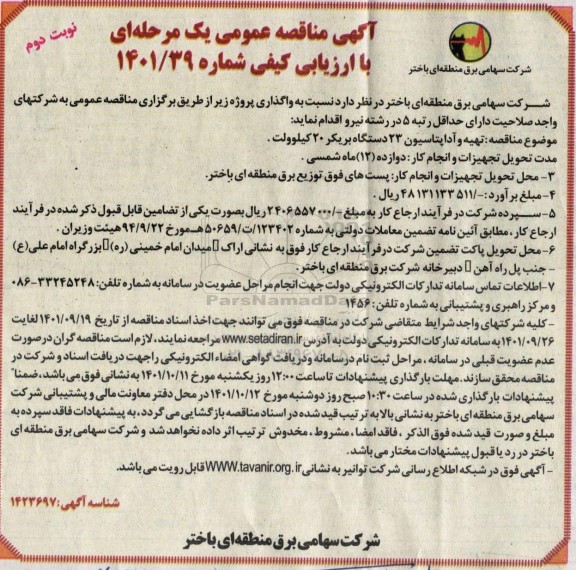 آگهی مناقصه عمومی یک مرحله‌ای
با ارزیابی کیفی شماره ۱۴۰۱/۳۹
نوبت دوم
شرکت سهامی برق منطقه‌ای باختر
شرکت سهامی برق منطقه‌ای باختر در نظر دارد نسبت به واگذاری پروژه زیر از طریق برگزاری مناقصه عمومی به شرکتهای
واجد صلاحیت دارای حداقل رتبه ۵ در رشته نیرو اقدام نماید:
موضوع مناقصه: تهیه و آداپتاسیون ۲۳ دستگاه بریکر ۲۰ کیلوولت .
مدت تحویل تجهیزات و انجام کار: دوازده (۱۲) ماه شمسی .
۳- محل تحویل تجهیزات و انجام کار: پست های فوق توزیع برق منطقه ای باختر.
۴- مبلغ برآورد: -/۴۸۱۳۱۱۳۳۵۱۱ ریال .
۵- سپرده شرکت در فرآیند ارجاع کار به مبلغ -/۲۴۰۶۵۵۷۰۰۰ ریال بصورت یکی از تضامین قابل قبول ذکر شده در فرآیند
ارجاع کار ، مطابق آئین نامه تضمین معاملات دولتی به شماره ۱۲۳۴۰۲/ت/۵۰۶۵۹هـ مورخ ۹۴/۹/۲۲ هیئت وزیران .
۶- محل تحویل پاکت تضمین شرکت در فرآیند ارجاع کار فوق به نشانی اراک میدان امام خمینی (ره) بزرگراه امام علی(ع)
- جنب پل راه آهن دبیرخانه شرکت برق منطقه ای باختر.
۷- اطلاعات تماس سامانه تدارکات الکترونیکی دولت جهت انجام مراحل عضویت در سامانه به شماره تلفن: ۳۳۲۴۵۲۴۸-۰۸۶
و مرکز راهبری و پشتیبانی به شماره تلفن: ۱۴۵۶
- کلیه شرکتهای واجد شرایط متقاضی شرکت در مناقصه فوق می توانند جهت اخذ اسناد مناقصه از تاریخ ۱۴۰۱/۰۹/۱۹ لغایت
۱۴۰۱/۰۹/۲۶ به سامانه تدارکات الکترونیکی دولت به آدرس www.setadiran.ir مراجعه نمایند، لازم است مناقصه گران در صورت
عدم عضویت قبلی در سامانه ، مراحل ثبت نام در سامانه و دریافت گواهی امضاء الکترونیکی را جهت دریافت اسناد و شرکت در
مناقصه محقق سازند. مهلت بارگذاری پیشنهادات تا ساعت ۱۲:۰۰ روز یکشنبه مورخ ۱۴۰۱/۱۰/۱۱ به نشانی فوق می باشد، ضمناً
پیشنهادات بارگذاری شده در ساعت ۱۰:۳۰ صبح روز دوشنبه مورخ ۱۴۰۱/۱۰/۱۲ در محل دفتر معاونت مالی و پشتیبانی شرکت
سهامی برق منطقه ای باختر به نشانی بالا به ترتیب قید شده در اسناد مناقصه بازگشایی می گردد، به پیشنهادات فاقد سپرده به
مبلغ و صورت قید شده فوق الذکر ، فاقد امضاء ، مشروط ، مخدوش ترتیب اثر داده نخواهد شد و شرکت سهامی برق منطقه ای
باختر در رد یا قبول پیشنهادات مختار می باشد.
- آگهی فوق در شبکه اطلاع رسانی شرکت توانیر به نشانی WWW.tavanir.org.ir قابل رویت می باشد.
شناسه آگهی: ۱۴۲۳۶۹۷
شرکت سهامی برق منطقه‌ای باختر